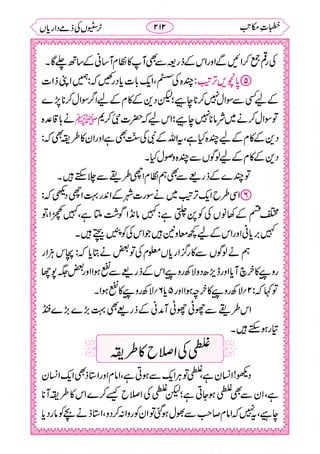 خطباتِ مکاتب ۲۱۲ ٹرسٹیوں کی ذمے داریاں
کی رقم جمع کرائیں گے اور اس کے ذریعے بھی آپ کا نظام آسانی کے ساتھ چلے گا۔
⑤ پانچویں ترتیب: چندہ کی سسٹم، ایک بات یاد رکھیں کہ: ہمیں اپنی ذات
کے لیے کسی سے سوال نہیں کرنا چاہیے؛ لیکن دین کے کام کے لیے اگر سوال کرنے پڑے
تو سوال کرنے میں شرمانا نہیں چاہیے؛ اس لیے کہ حضرت نبی کریم ﷺ نے باقاعدہ
دین کے کام کے لیے چندہ کیا ہے، یہ اللہ کے نبی کی سنّت بھی ہے اور ان کا طریقہ بھی کہ:
دین کے کام کے لیے لوگوں سے چندہ وصول کیا۔
تو چندے کے ذریعے سے بھی ہم نظام اچھی طریقے سے چلا سکتے ہیں۔
⑥ اسی طرح ایک ترتیب میں نے سورت شہر کے اندر بہت اچھی یہ بھی دیکھی کہ:
مختلف قسم کے کھانوں کی کوپن چلتی ہے: کہیں انڈا، کہیں گوشت ملتا ہے، کہیں اچھا تو
کہیں بریانی اور اس کے لیے کچھ معاونین ہیں جو اس کوپن کو بیچتے ہیں۔
ہم نے لوگوں سے کارگزاریاں معلوم کی تو بعض نے بتایا کہ: پچاس ہزار
روپے کا خرچ آیا اور ڈیڑھ دو لاکھ روپے کا اس کے ذریعے سے نفع ہوا اور بعض جگہ پوچھا
تو کہا کہ: ۲؍لاکھ روپے کا خرچہ ہوا اور ۵؍یا ۶؍لاکھ روپے کا نفع ہوا۔
اس طریقے سے چھوٹی چھوٹی آمدنی کے ذریعے بھی بہت بڑے بڑے فنڈ
تیار ہو سکتے ہیں۔
غلطی کی اصلاح کا طریقہ
دیکھو! انسان ہے، غلطی تو ہر ایک سے ہوتی ہے، امام اور استاذ بھی ایک انسان
ہے، ان سے بھی غلطی ہو جاتی ہے؛ لیکن غلطی کی اصلاح کیسے کرے اس کا طریقہ آنا
چاہیے، یہ نہیں کہ امام صاحب سے بھول ہوگئی تو ان کو روانہ کر دو، استاذ نے بچے کو مار دیا